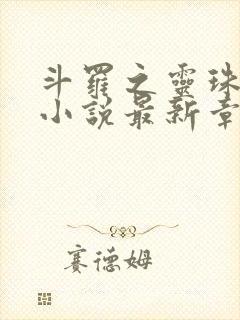 斗羅之靈珠
小說最新章
賽德姆